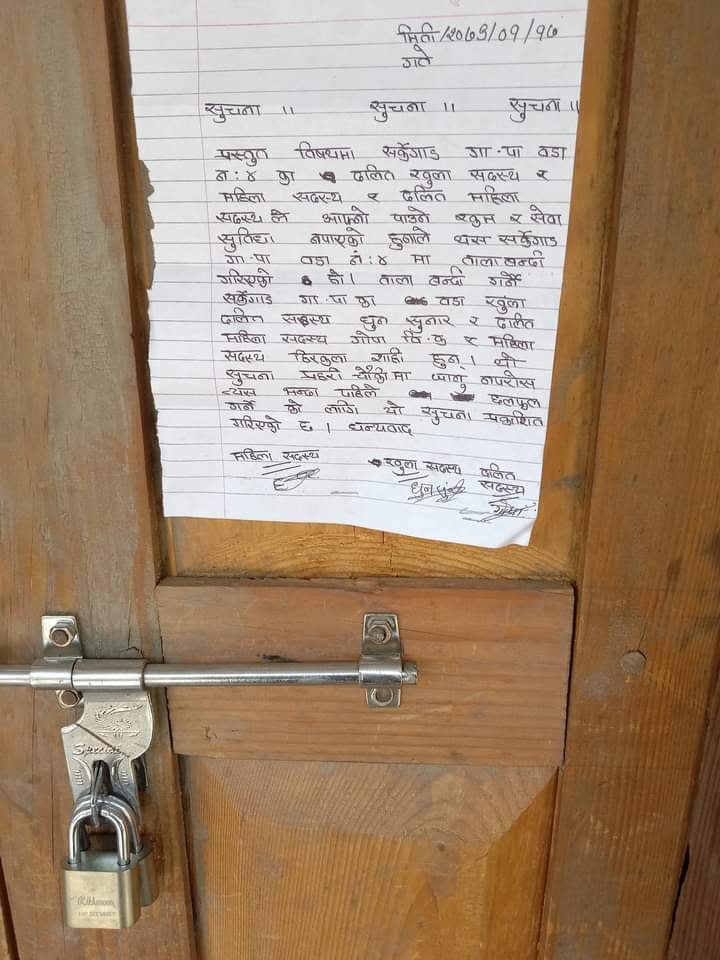 मिती/२०७९/०१/१७
गते
सुचना ।। सुचना ।। सुचना ।।
प्रस्तुत विषयमा सर्केगाड गा.पा वडा
न:४ का दलित खुला सदस्य र
महिला सदस्य र दलित महिला
सदस्य ले आफ्नो पाउने रकम र सेवा
सुविधा नपाएको हुनाले यस सर्केगाड
गा.पा वडा नं:४ मा ताला बन्दी
गरिएको हो। ताला बन्दी गर्ने
सर्केगाड गा.पा का वडा खुला
दलित सदस्य धुन सुनार र दलित
महिला सदस्य गोपा वि.क र महिला
सदस्य हिरकला शाही हुन्। यो
सुचना प्रहरी चौकी मा
त्यस भन्दा पहिले छलफल
गर्ने को लागि यो सुचना प्रकाशित
गरिएको छ। धन्यवाद
महिला सदस्य खुला सदस्य दलित
सदस्य
Special
TOP SECURITY